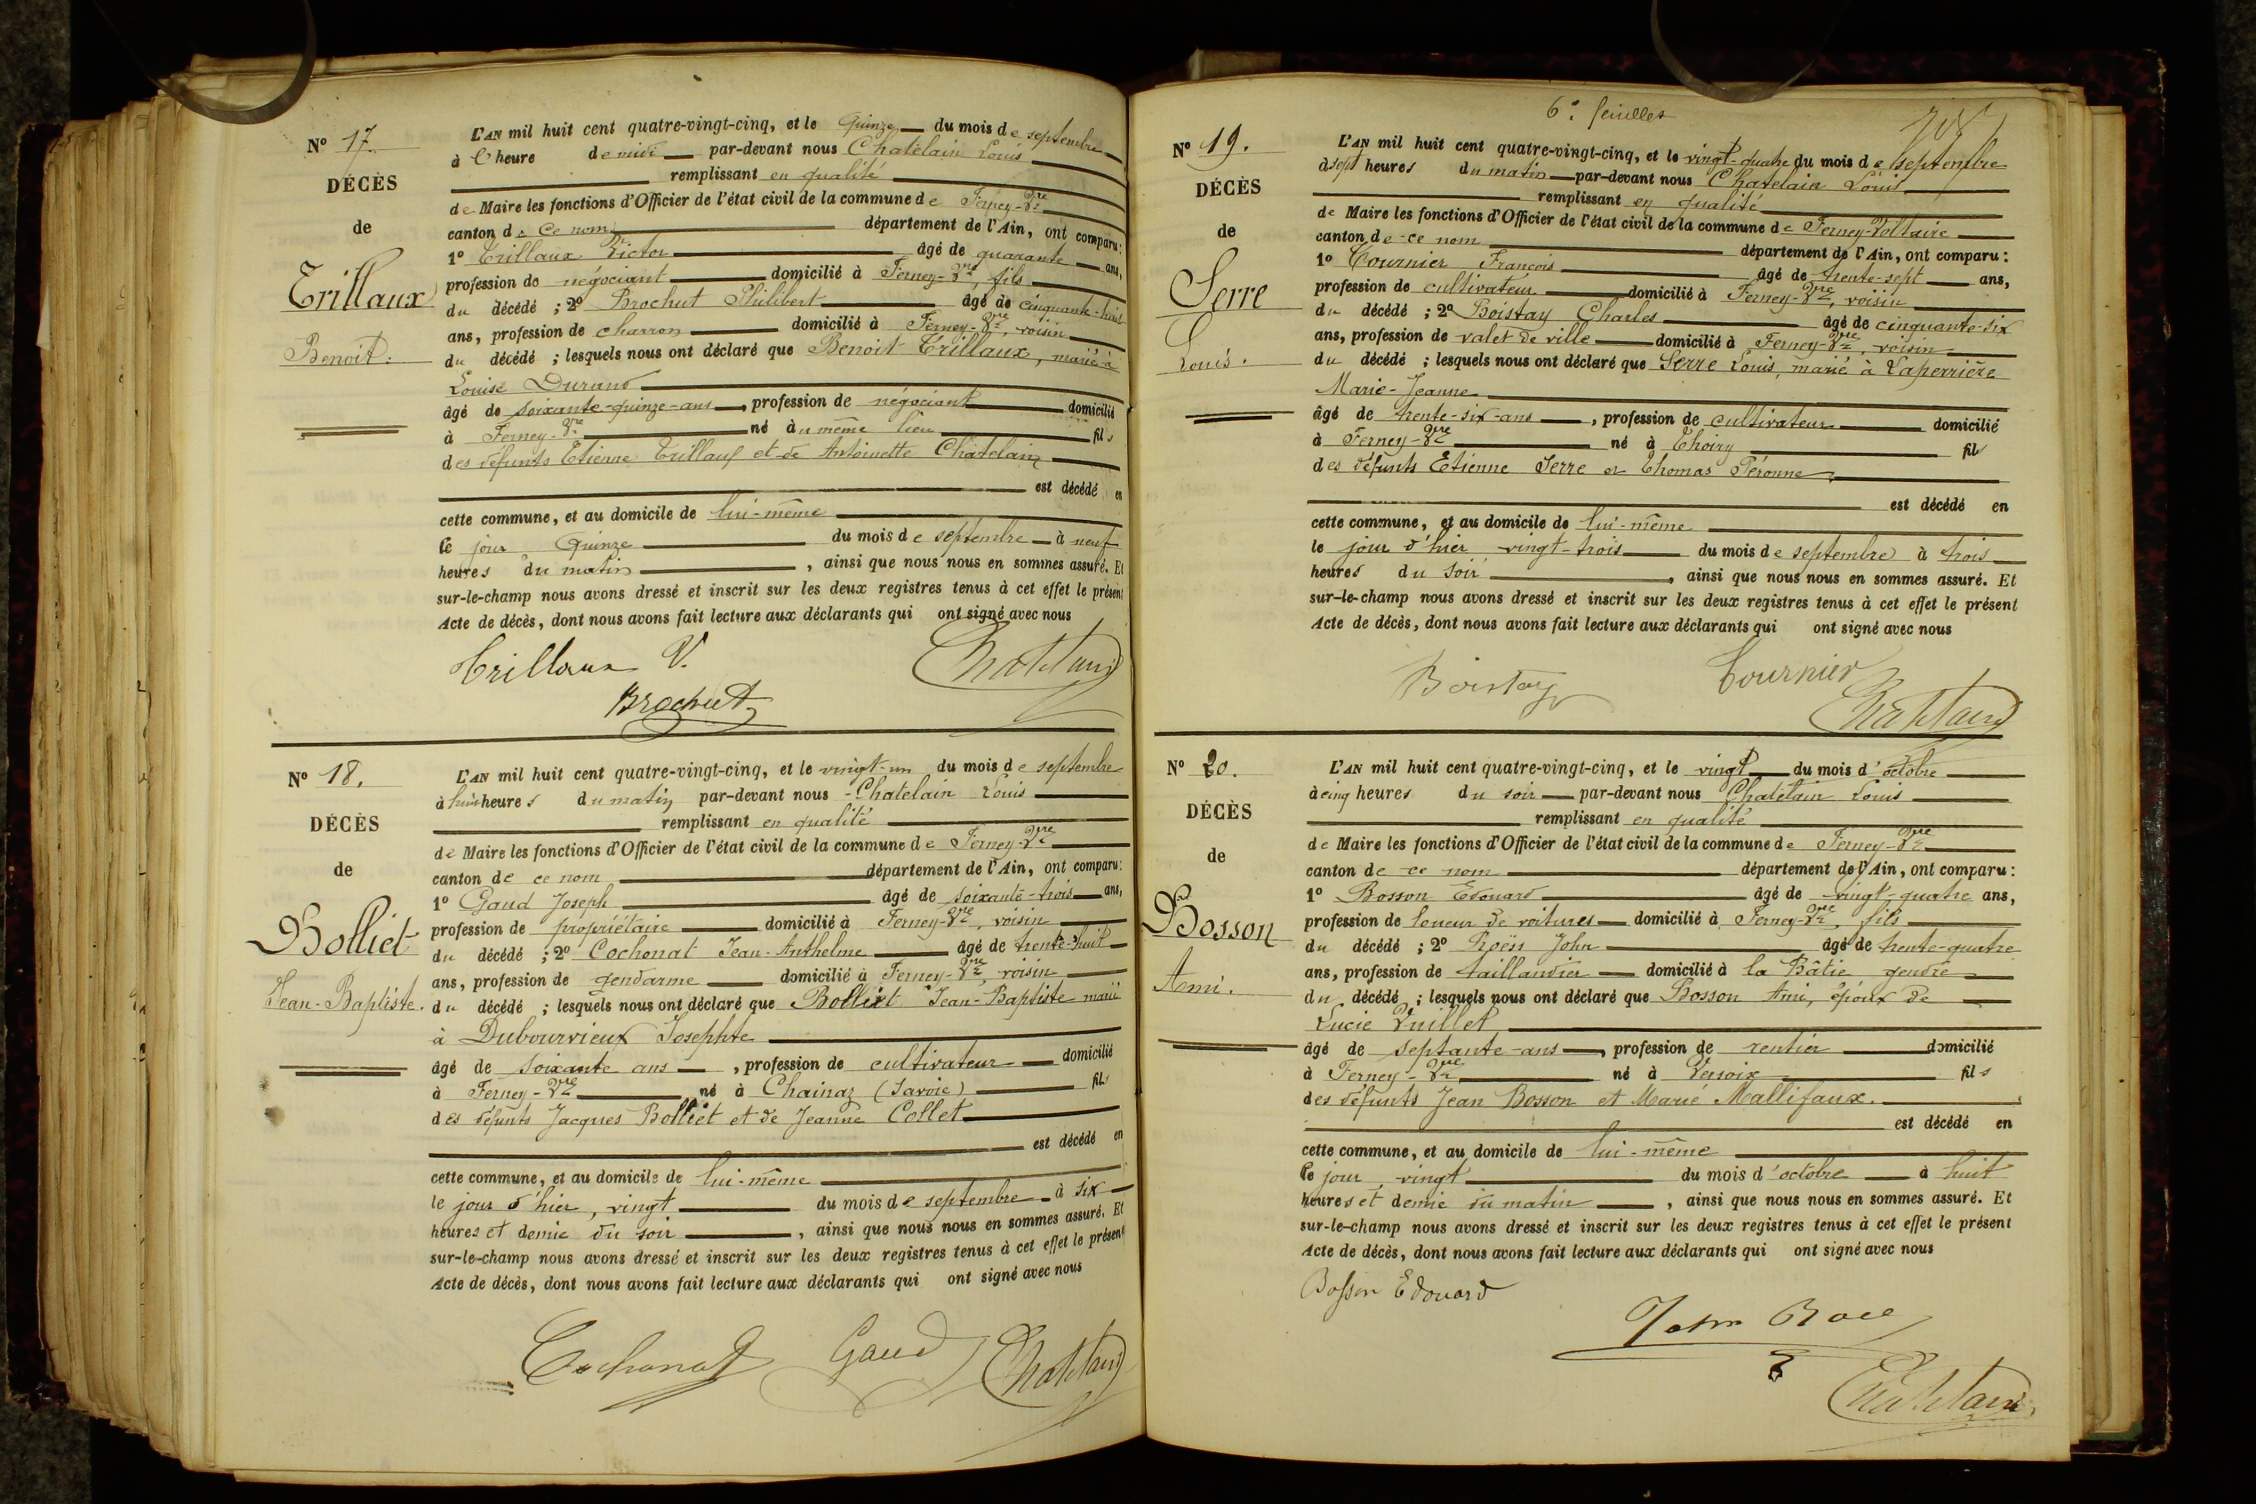 N° 17.
DÉCÈS
de
Trillaux
Benoit.
L'AN mil huit cent quatre-vingt-cinq, et le quinze du mois de septembre
à l'heure de midi par-devant nous Chatelain Louis
remplissant en qualité
de Maire les fonctions d'Officier de l'état civil de la commune de Ferney-Vre
canton de ce nom département de l'Ain, ont comparu:
1° Trillaux Victor âgé de quarante ans,
profession de négociant domicilié à Ferney-Vre, fils
du décédé ; 2° Brochut Philibert âgé de cinquante-huit
ans, profession de charron domicilié à Ferney-Vre, voisin
du décédé ; lesquels nous ont déclaré que Benoit Trillaux, marié à
Louise Durand
âgé de soixante-quinze-ans, profession de négociant domicilié
à Ferney-Vre né au même lieu fils
des défunts Etienne Trillaux et de Antoinette Chatelain
est décédé en
cette commune, et au domicile de lui-même
le jour quinze du mois de septembre à neuf
heures du matin, ainsi que nous nous en sommes assuré. Et
sur-le-champ nous avons dressé et inscrit sur les deux registres tenus à cet effet le présent
Acte de décès, dont nous avons fait lecture aux déclarants qui ont signé avec nous
Trillaux V. Chatelain
Brochut
N° 18.
DÉCÈS
de
Bolliet
Jean-Baptiste.
L'AN mil huit cent quatre-vingt-cinq, et le vingt-un du mois de septembre
à huit heures du matin par-devant nous Chatelain Louis
remplissant en qualité
de Maire les fonctions d'Officier de l'état civil de la commune de Ferney-Vre
canton de ce nom département de l'Ain, ont comparu:
1° Gaud Joseph âgé de soixante-trois ans,
profession de propriétaire domicilié à Ferney-Vre, voisin
du décédé ; 2° Cochonat Jean-Anthelme âgé de trente-huit
ans, profession de gendarme domicilié à Ferney-Vre, voisin
du décédé ; lesquels nous ont déclaré que Bolliet Jean-Baptiste marié
à Dubourvieux Josephte
âgé de soixante ans, profession de cultivateur domicilié
à Ferney-Vre né à Chainaz (Savoie) fils
des défunts Jacques Bolliet et de Jeanne Collet
est décédé en
cette commune, et au domicile de lui-même
le jour d'hier, vingt du mois de septembre à six
heures et demie du soir, ainsi que nous nous en sommes assuré. Et
sur-le-champ nous avons dressé et inscrit sur les deux registres tenus à cet effet le présent
Acte de décès, dont nous avons fait lecture aux déclarants qui ont signé avec nous
Cochonat Gaud Chatelain
6e feuilles
N° 19.
DÉCÈS
de
Serre
Louis.
L'AN mil huit cent quatre-vingt-cinq, et le vingt-quatre du mois de septembre
à sept heures du matin par-devant nous Chatelain Louis
remplissant en qualité
de Maire les fonctions d'Officier de l'état civil de la commune de Ferney-Voltaire
canton de ce nom département de l'Ain, ont comparu:
1° Tournier François âgé de trente-sept ans,
profession de cultivateur domicilié à Ferney-Vre, voisin
du décédé ; 2° Boistay Charles âgé de cinquante-six
ans, profession de valet de ville domicilié à Ferney-Vre, voisin
du décédé ; lesquels nous ont déclaré que Serre Louis, marié à Laperrière
Marie-Jeanne
âgé de trente-six-ans, profession de cultivateur domicilié
à Ferney-Vre né à Thoiry fils
des défunts Etienne Serre et Thomas Péronne
est décédé en
cette commune, et au domicile de lui-même
le jour d'hier vingt-trois du mois de septembre à trois
heures du soir, ainsi que nous nous en sommes assuré. Et
sur-le-champ nous avons dressé et inscrit sur les deux registres tenus à cet effet le présent
Acte de décès, dont nous avons fait lecture aux déclarants qui ont signé avec nous
Boistay Tournier
Chatelain
N° 20.
DÉCÈS
de
Bosson
Ami.
L'AN mil huit cent quatre-vingt-cinq, et le vingt du mois d'octobre
à cinq heures du soir par-devant nous Chatelain Louis
remplissant en qualité
de Maire les fonctions d'Officier de l'état civil de la commune de Ferney-Vre
canton de ce nom département de l'Ain, ont comparu:
1° Bosson Edouard âgé de vingt-quatre ans,
profession de loueur de voitures domicilié à Ferney-Vre, fils
du décédé ; 2° Roëss John âgé de trente-quatre
ans, profession de taillandier domicilié à la Bâtie gendre
du décédé ; lesquels nous ont déclaré que Bosson Ami, époux de
Lucie Vuillet
âgé de septante-ans, profession de rentier domicilié
à Ferney-Vre né à Versoix fils
des défunts Jean Bosson et Marie Mallifaux.
est décédé en
cette commune, et au domicile de lui-même
le jour, vingt du mois d'octobre à huit
heures et demie du matin, ainsi que nous nous en sommes assuré. Et
sur-le-champ nous avons dressé et inscrit sur les deux registres tenus à cet effet le présent
Acte de décès, dont nous avons fait lecture aux déclarants qui ont signé avec nous
Bosson Edouard
John
Chatelain